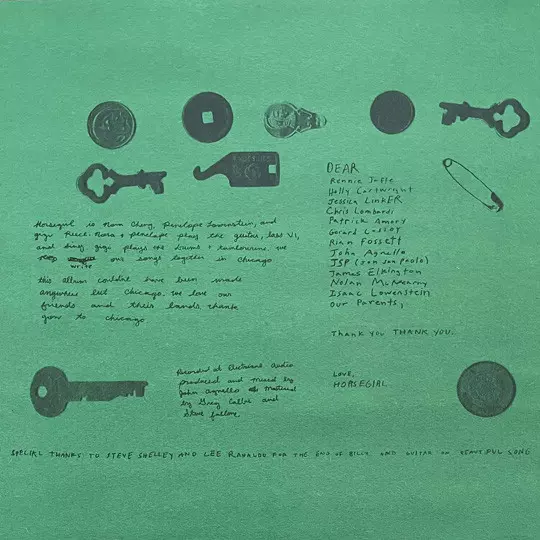 Horsegirl is Nora Cheng, Penelope Lowenstein, and
gigi Reece. Nora + Penelope play the guitar, bass VI,
and sing. gigi plays the drums + tambourine. we
write our songs together in Chicago
this album couldnt have been made
anywhere but Chicago. We love our
friends and their bands. thank
you to chicago
DEAR
Rennie Jaffe
Holly Cartwright
Jessica LinkER
Chris Lombardi
Patrick Amory
Gerard Cosloy
Rian Fossett
John Agnello
JSP (son san paolo)
James Elkington
Nolan
Isaac Lowenstein
Our Parents,
Thank you THANK YOU.
LOVE,
HORSEGIRL
Recorded at Electrical Audio
produced and mixed by
John Agnello Mastered
by Greg Calbi and
Steve fallone.
SPECIAL THANKS TO STEVE SHELLEY AND LEE RANALDO FOR THE END OF BILLY AND GUITAR ON BEAUTIFUL SONG